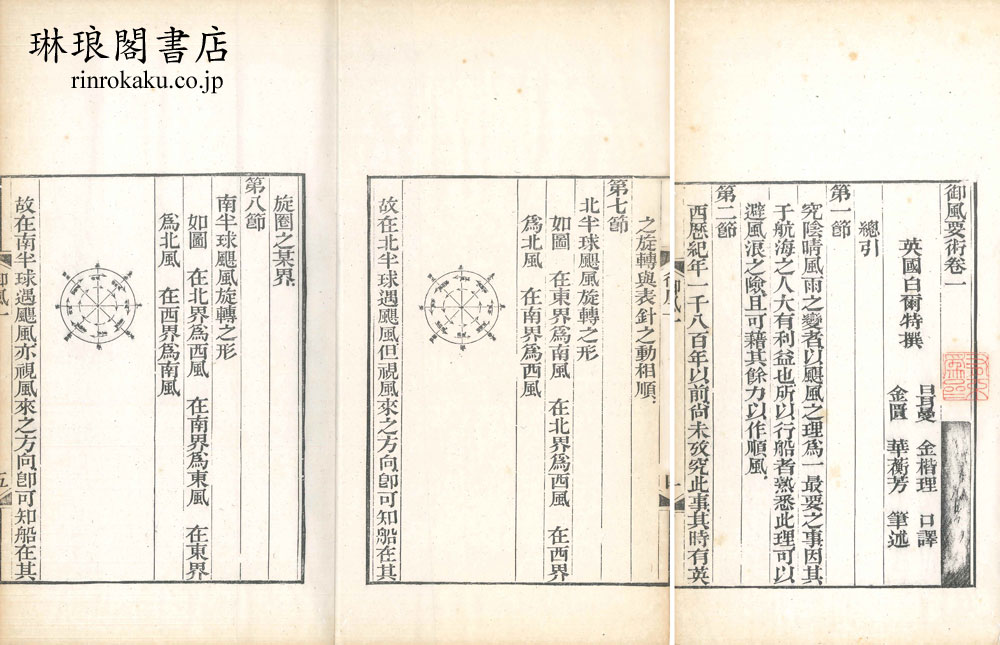 琳琅閣書店
rinrokaku.co.jp
御風要術卷一
英國白爾特撰
金楷理 口譯
華蘅芳 筆述
總引
第一節
究陰晴風雨之變者以颶風之理爲一最要之事因其
于航海之人大有利益也所以行船者熟悉此理可以
避風浪之險且可藉其餘力以作順風
第二節
西歷紀年一千八百年以前尚未攷究此事其時有英
之旋轉與表針之動相順
第七節
北半球颶風旋轉之形
如圖 在東界爲南風 在北界爲西風 在西界
爲北風 在南界爲西風
故在北半球遇颶風但視風來之方向卽可知船在其
旋圈之某界
第八節
南半球颶風旋轉之形
如圖 在北界爲西風 在南界爲東風 在東界
爲北風 在西界爲南風
故在南半球遇颶風亦視風來之方向卽可知船在其